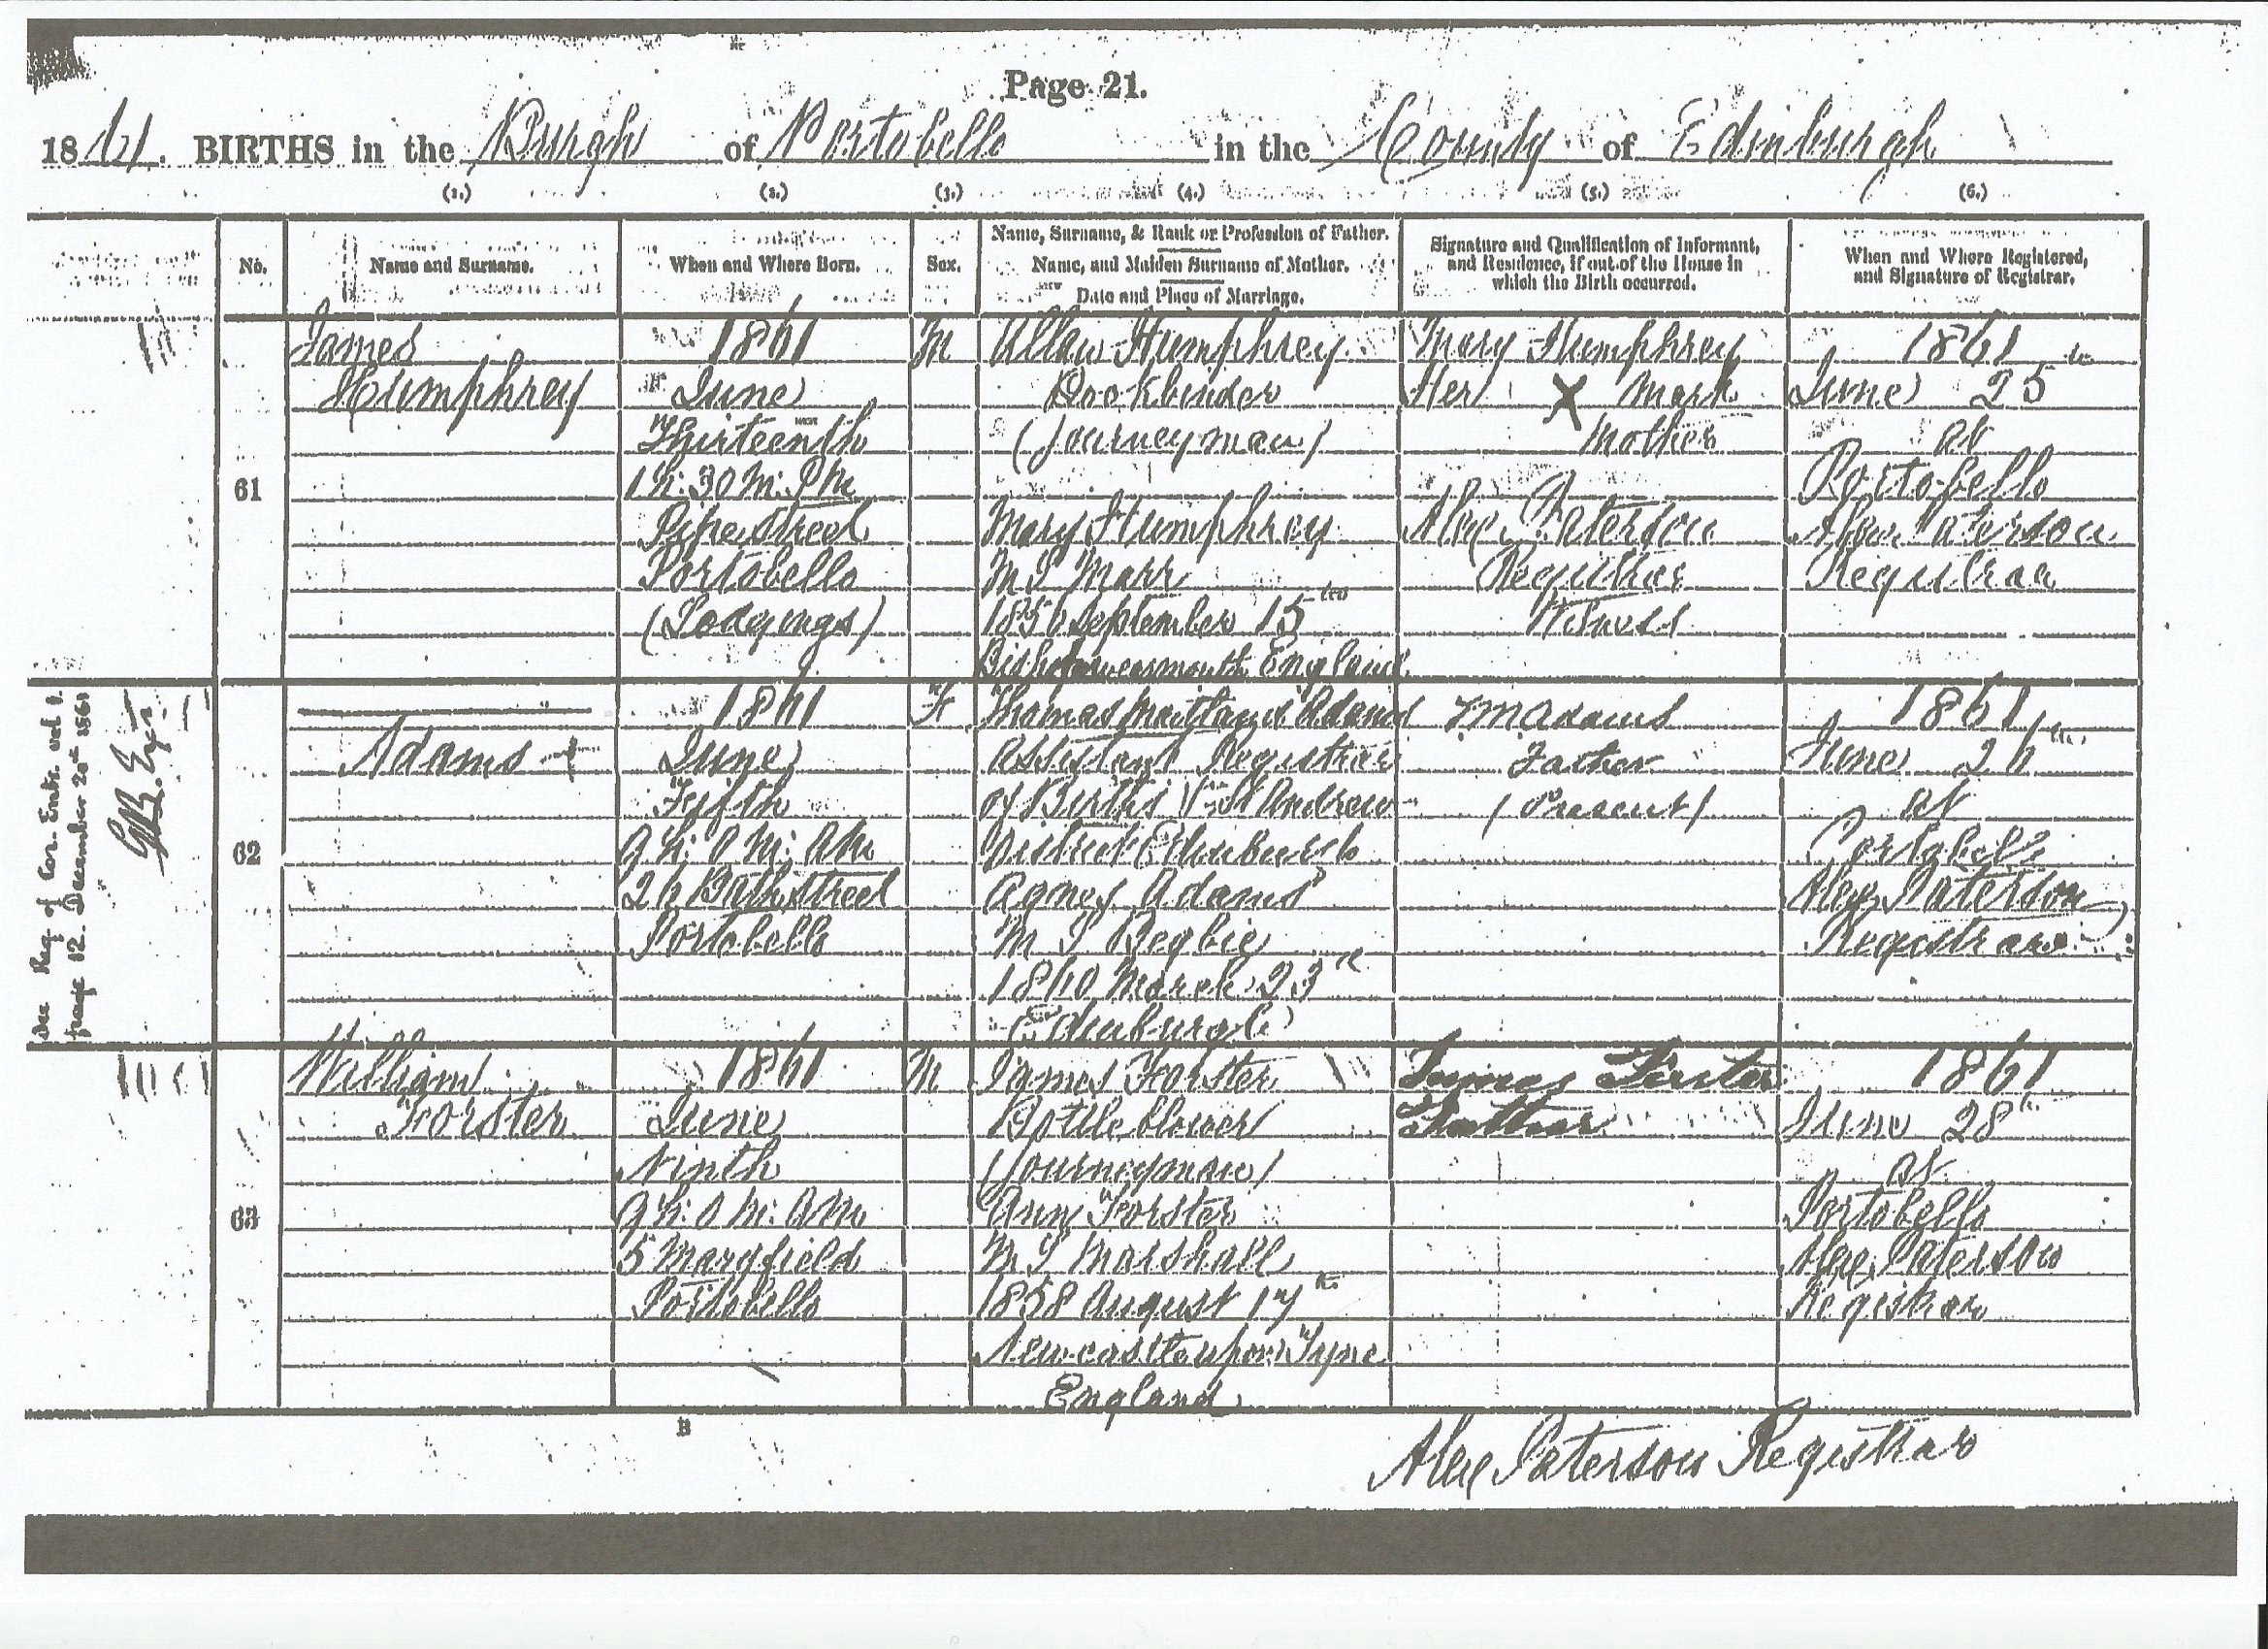 Page 21.
1861. BIRTHS in the Burgh of Portobello in the County of Edinburgh
(1.) (2.) (3.) (4.) (5.) (6.)
No.
Name and Surname.
When and Where Born.
Sex.
Name, Surname, & Rank or Profession of Father.
Name, and Maiden Surname of Mother.
Date and Place of Marriage.
Signature and Qualification of Informant,
and Residence, if out of the House in
which the Birth occurred.
When and Where Registered,
and Signature of Registrar.
61
James
Humphrey
1861
June
Thirteenth
1 h. 30 m. PM
Pipe Street
Portobello
(Lodgings)
M
Allan Humphrey
Bookbinder
(Journeyman)
Mary Humphrey
M S Marr
1856 September 15th
Bishopwearmouth England
Mary Humphrey
Her X Mark
Mother
Alex Paterson
Registrar
Witness
1861
June 25th
At
Portobello
Alex Paterson
Registrar
See Reg of Cor. Ent. vol 1.
page 12. December 20th 1861
62
Adams +
1861
June
Fifth
9 h. 0 m. AM
26 Bath Street
Portobello
F
Thomas Maitland Adams
Assistant Registrar
of Births St Andrew
District Edinburgh
Agnes Adams
M S Begbie
1860 March 23rd
Edinburgh
T M Adams
Father
(Present)
1861
June 26th
At
Portobello
Alex Paterson
Registrar
63
William
Forster
1861
June
Ninth
9 h. 0 m. AM
5 Maryfield
Portobello
M
James Forster
Bottle blower
(Journeyman)
Ann Forster
M S Marshall
1858 August 17th
Newcastle upon Tyne
England
James Forster
Father
1861
June 28th
At
Portobello
Alex Paterson
Registrar
B
Alex Paterson Registrar